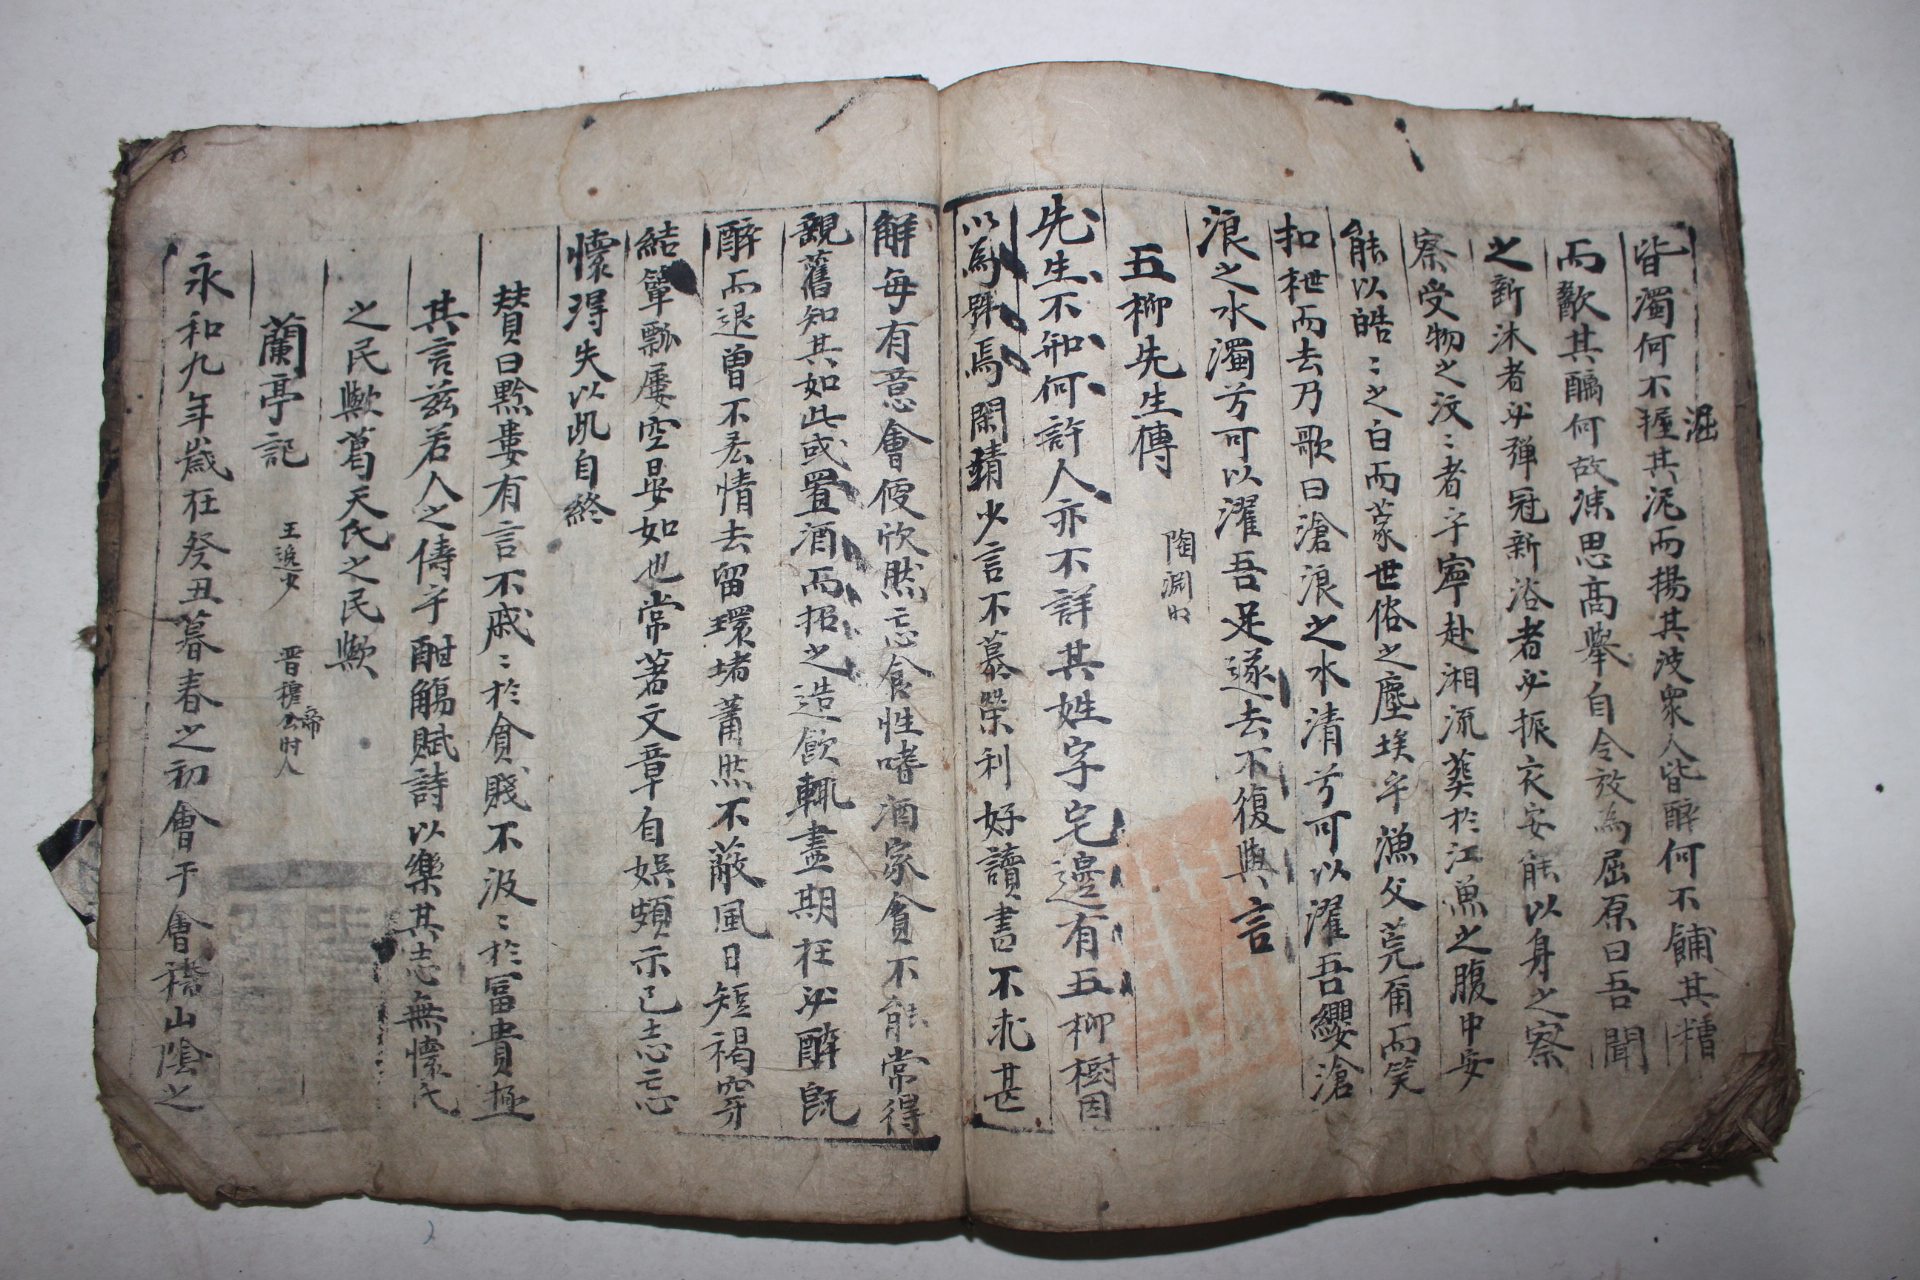 皆濁何不掘其泥而揚其波衆人皆醉何不餔其糟
而歠其醨何故深思高擧自令放爲屈原曰吾聞
之新沐者必彈冠新浴者必振衣安能以身之察
察受物之汶〻者乎寧赴湘流葬於江魚之腹中安
能以皓〻之白而蒙世俗之塵埃乎漁父莞爾而笑
扣枻而去乃歌曰滄浪之水清兮可以濯吾纓滄
浪之水濁兮可以濯吾足遂去不復與言
五柳先生傳 陶淵明
先生不知何許人亦不詳其姓字宅邊有五柳樹因
以爲號焉閑靖少言不慕榮利好讀書不求甚
解每有意會便欣然忘食性嗜酒家貧不能常得
親舊知其如此或置酒而招之造飮輒盡期在必醉旣
醉而退曾不吝情去留環堵蕭然不蔽風日短褐穿
結簞瓢屢空晏如也常著文章自娛頗示己志忘
懷得失以此自終
贊曰黔婁有言不戚〻於貧賤不汲〻於富貴極
其言玆若人之儔乎酣觴賦詩以樂其志無懷氏
之民歟葛天氏之民歟
蘭亭記 王逸少 晉穆帝時人
永和九年歲在癸丑暮春之初會于會稽山陰之